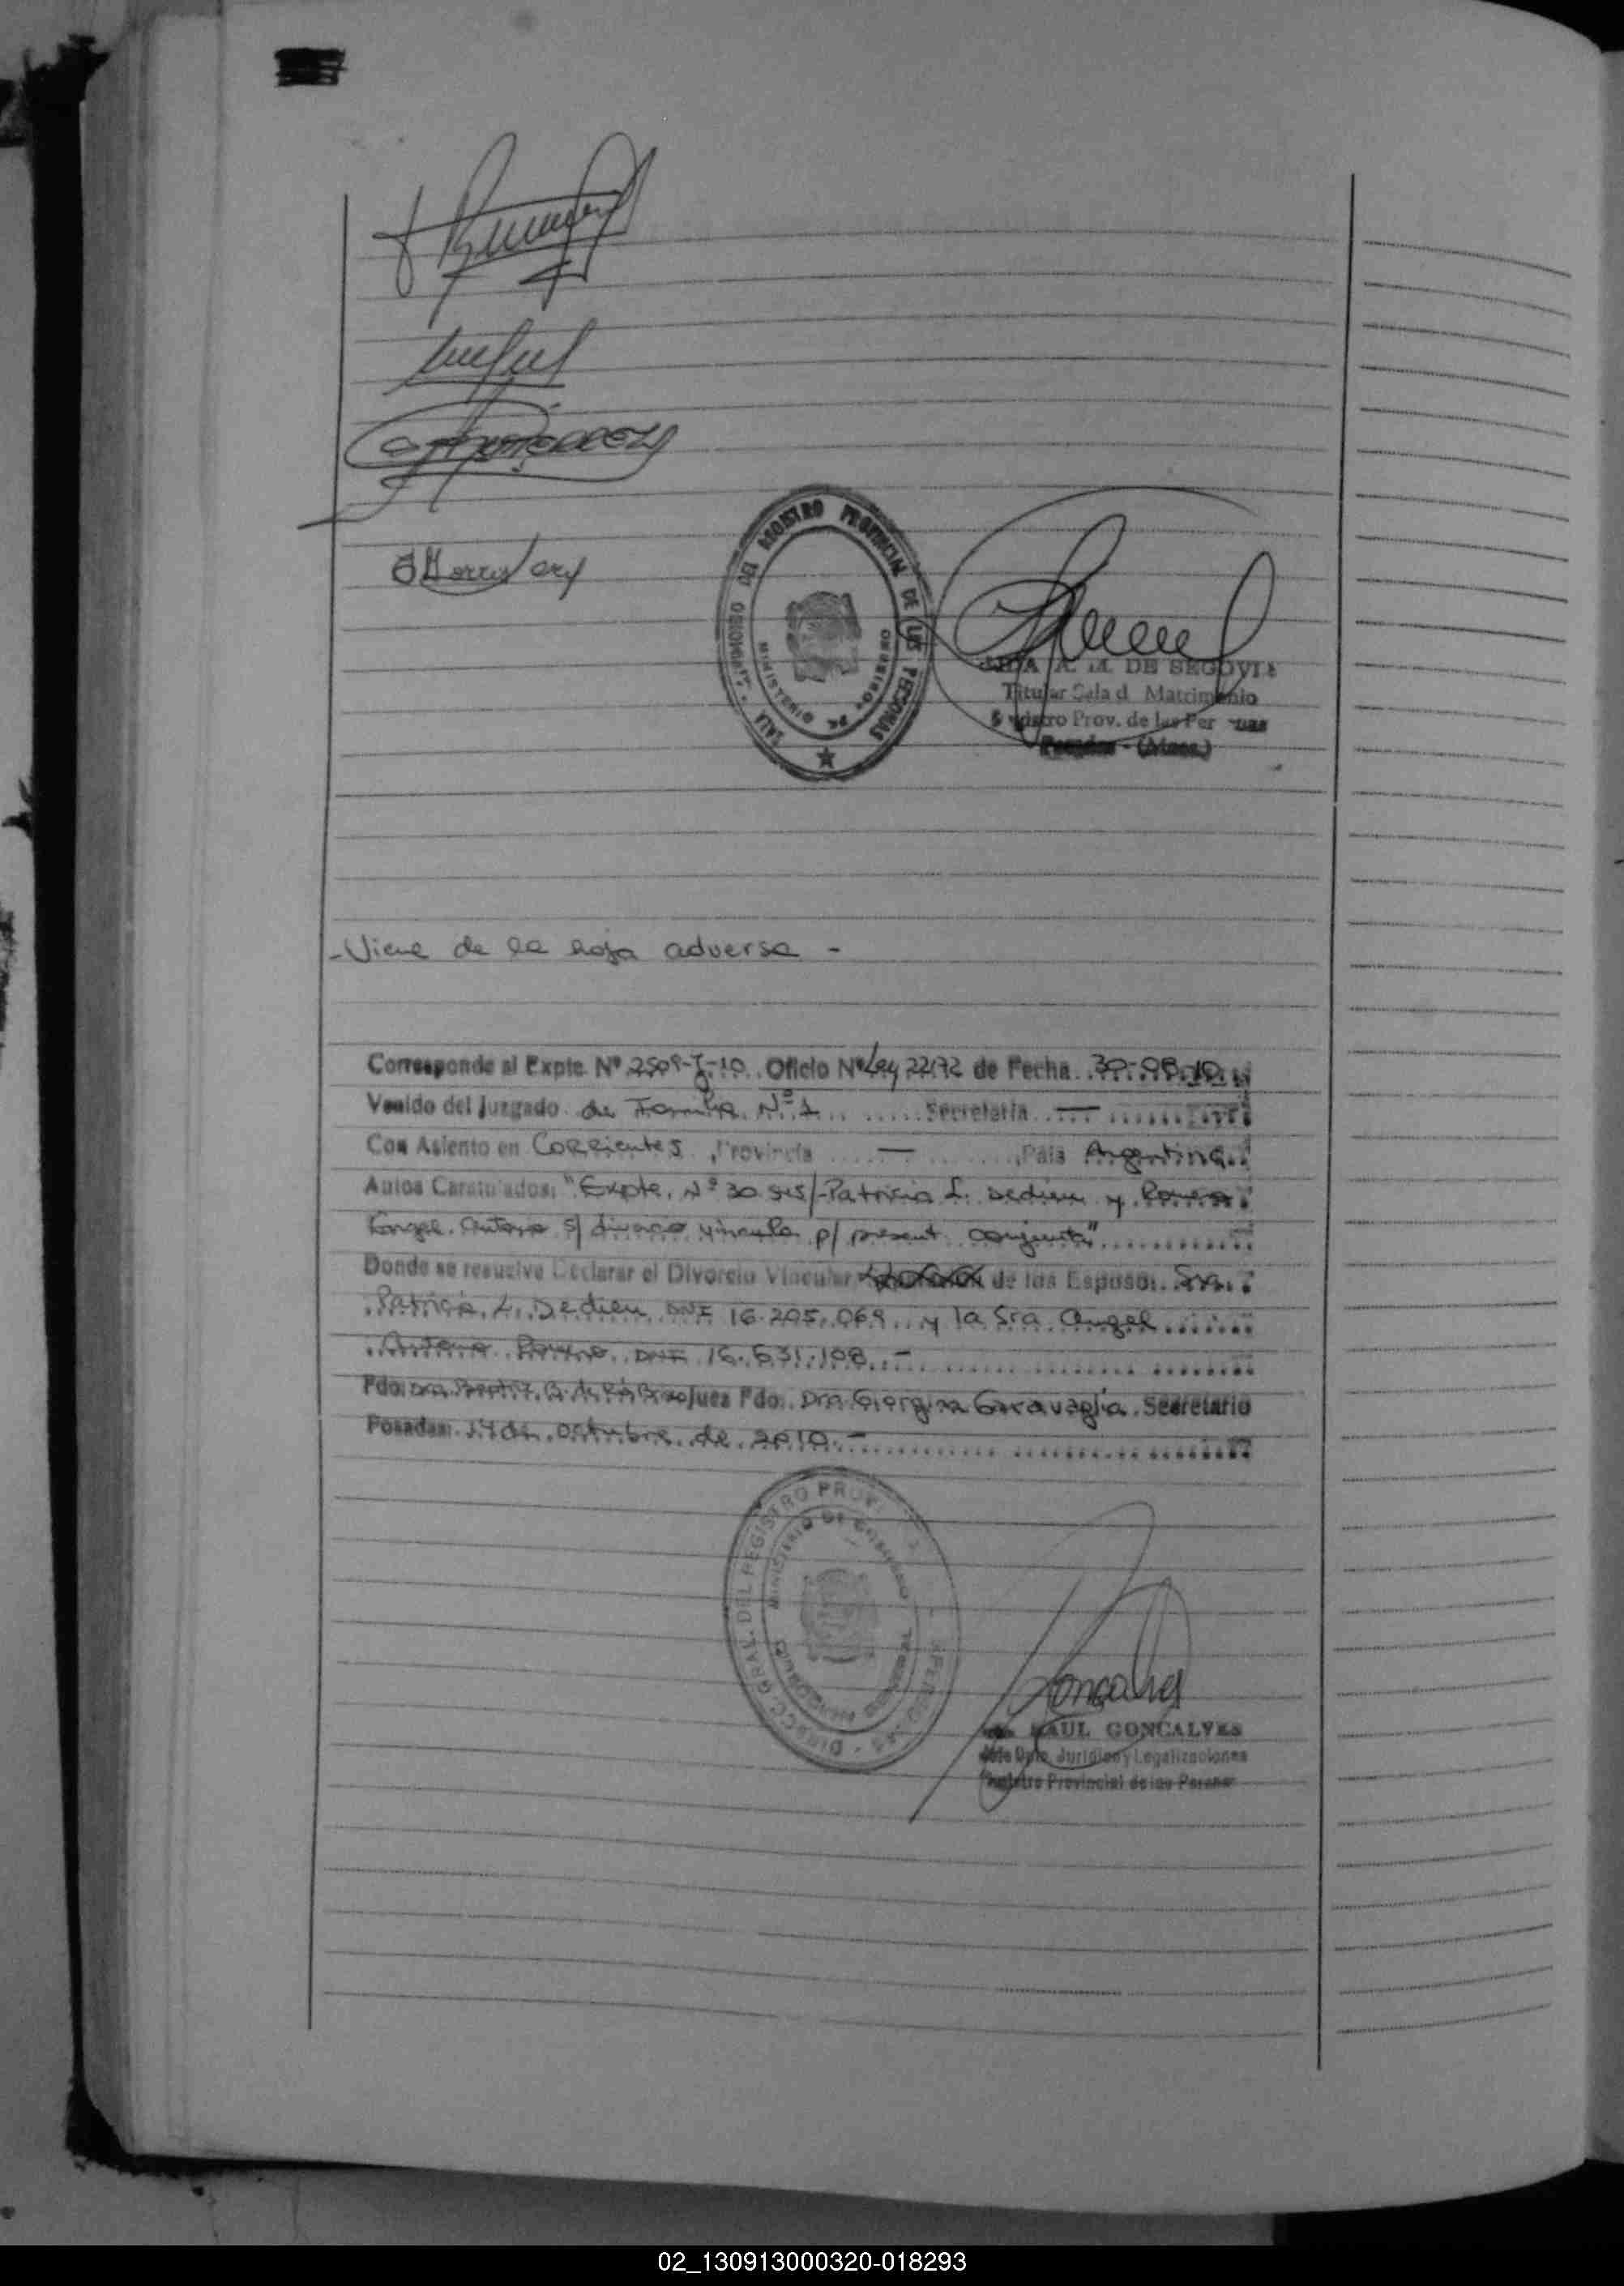 SALA MATRIMONIO - DEL REGISTRO PROVINCIAL DE LAS PERSONAS
MINISTERIO DE GOBIERNO
A. M. DE SEGOVIA
Titular Sala d Matrimonio
Registro Prov. de las Per nas
Posadas - (Mnes.)
- Viene de la hoja adversa -
Corresponde al Expte. Nº 2509-J-10. Oficio Nº Ley 22172 de Fecha 30-08-10
Venido del juzgado de Familia Nº 1 Secretaría —
Con Asiento en Corrientes, Provincia — , País Argentina
Autos Caratulados: "Expte. Nº 30.515/-Patricia L. Dedieu y Romero
Angel Antonio s/ divorcio vincular p/ present. conjunta"
Donde se resuelve Declarar el Divorcio Vincular de los Esposos Sra.
Patricia L. Dedieu DNI 16.205.069 y la Sra Angel
Antonio Romero DNI 16.631.108 -
Fdo. Dra. Juez Fdo. Dra. Giorgina Garavaglia Secretario
Posadas: 14 de Octubre de 2010.-
DIRECC. GRAL. DEL REGISTRO PROV
MINISTERIO DE GOBIERNO
Goncalves
RAUL GONCALVES
Jefe Dpto. Juridico y Legalizaciones
Registro Provincial de las Personas
02_130913000320-018293